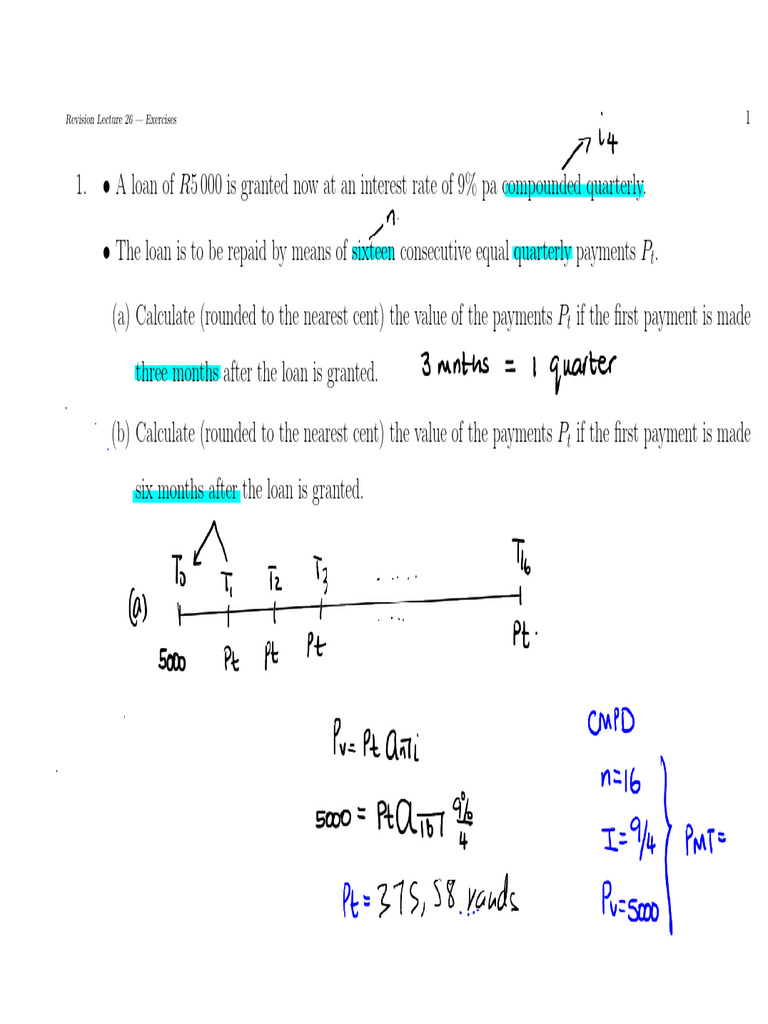 Revision Lecture 26 — Exercises 1
i₄
1. • A loan of R5 000 is granted now at an interest rate of 9% pa compounded quarterly.
n.
• The loan is to be repaid by means of sixteen consecutive equal quarterly payments Pₜ.
(a) Calculate (rounded to the nearest cent) the value of the payments Pₜ if the first payment is made
three months after the loan is granted. 3 mnths = 1 quarter
(b) Calculate (rounded to the nearest cent) the value of the payments Pₜ if the first payment is made
six months after the loan is granted.
T₀ T₁ T₂ T₃ ..... T₁₆
(a)
5000 Pt Pt Pt .... Pt.
Pv = Pt a n̅| i
5000 = Pt a 16̅| 9%/4
Pt = 375,58 rands
CMPD
n=16
I=9/4 PMT=
Pv=5000